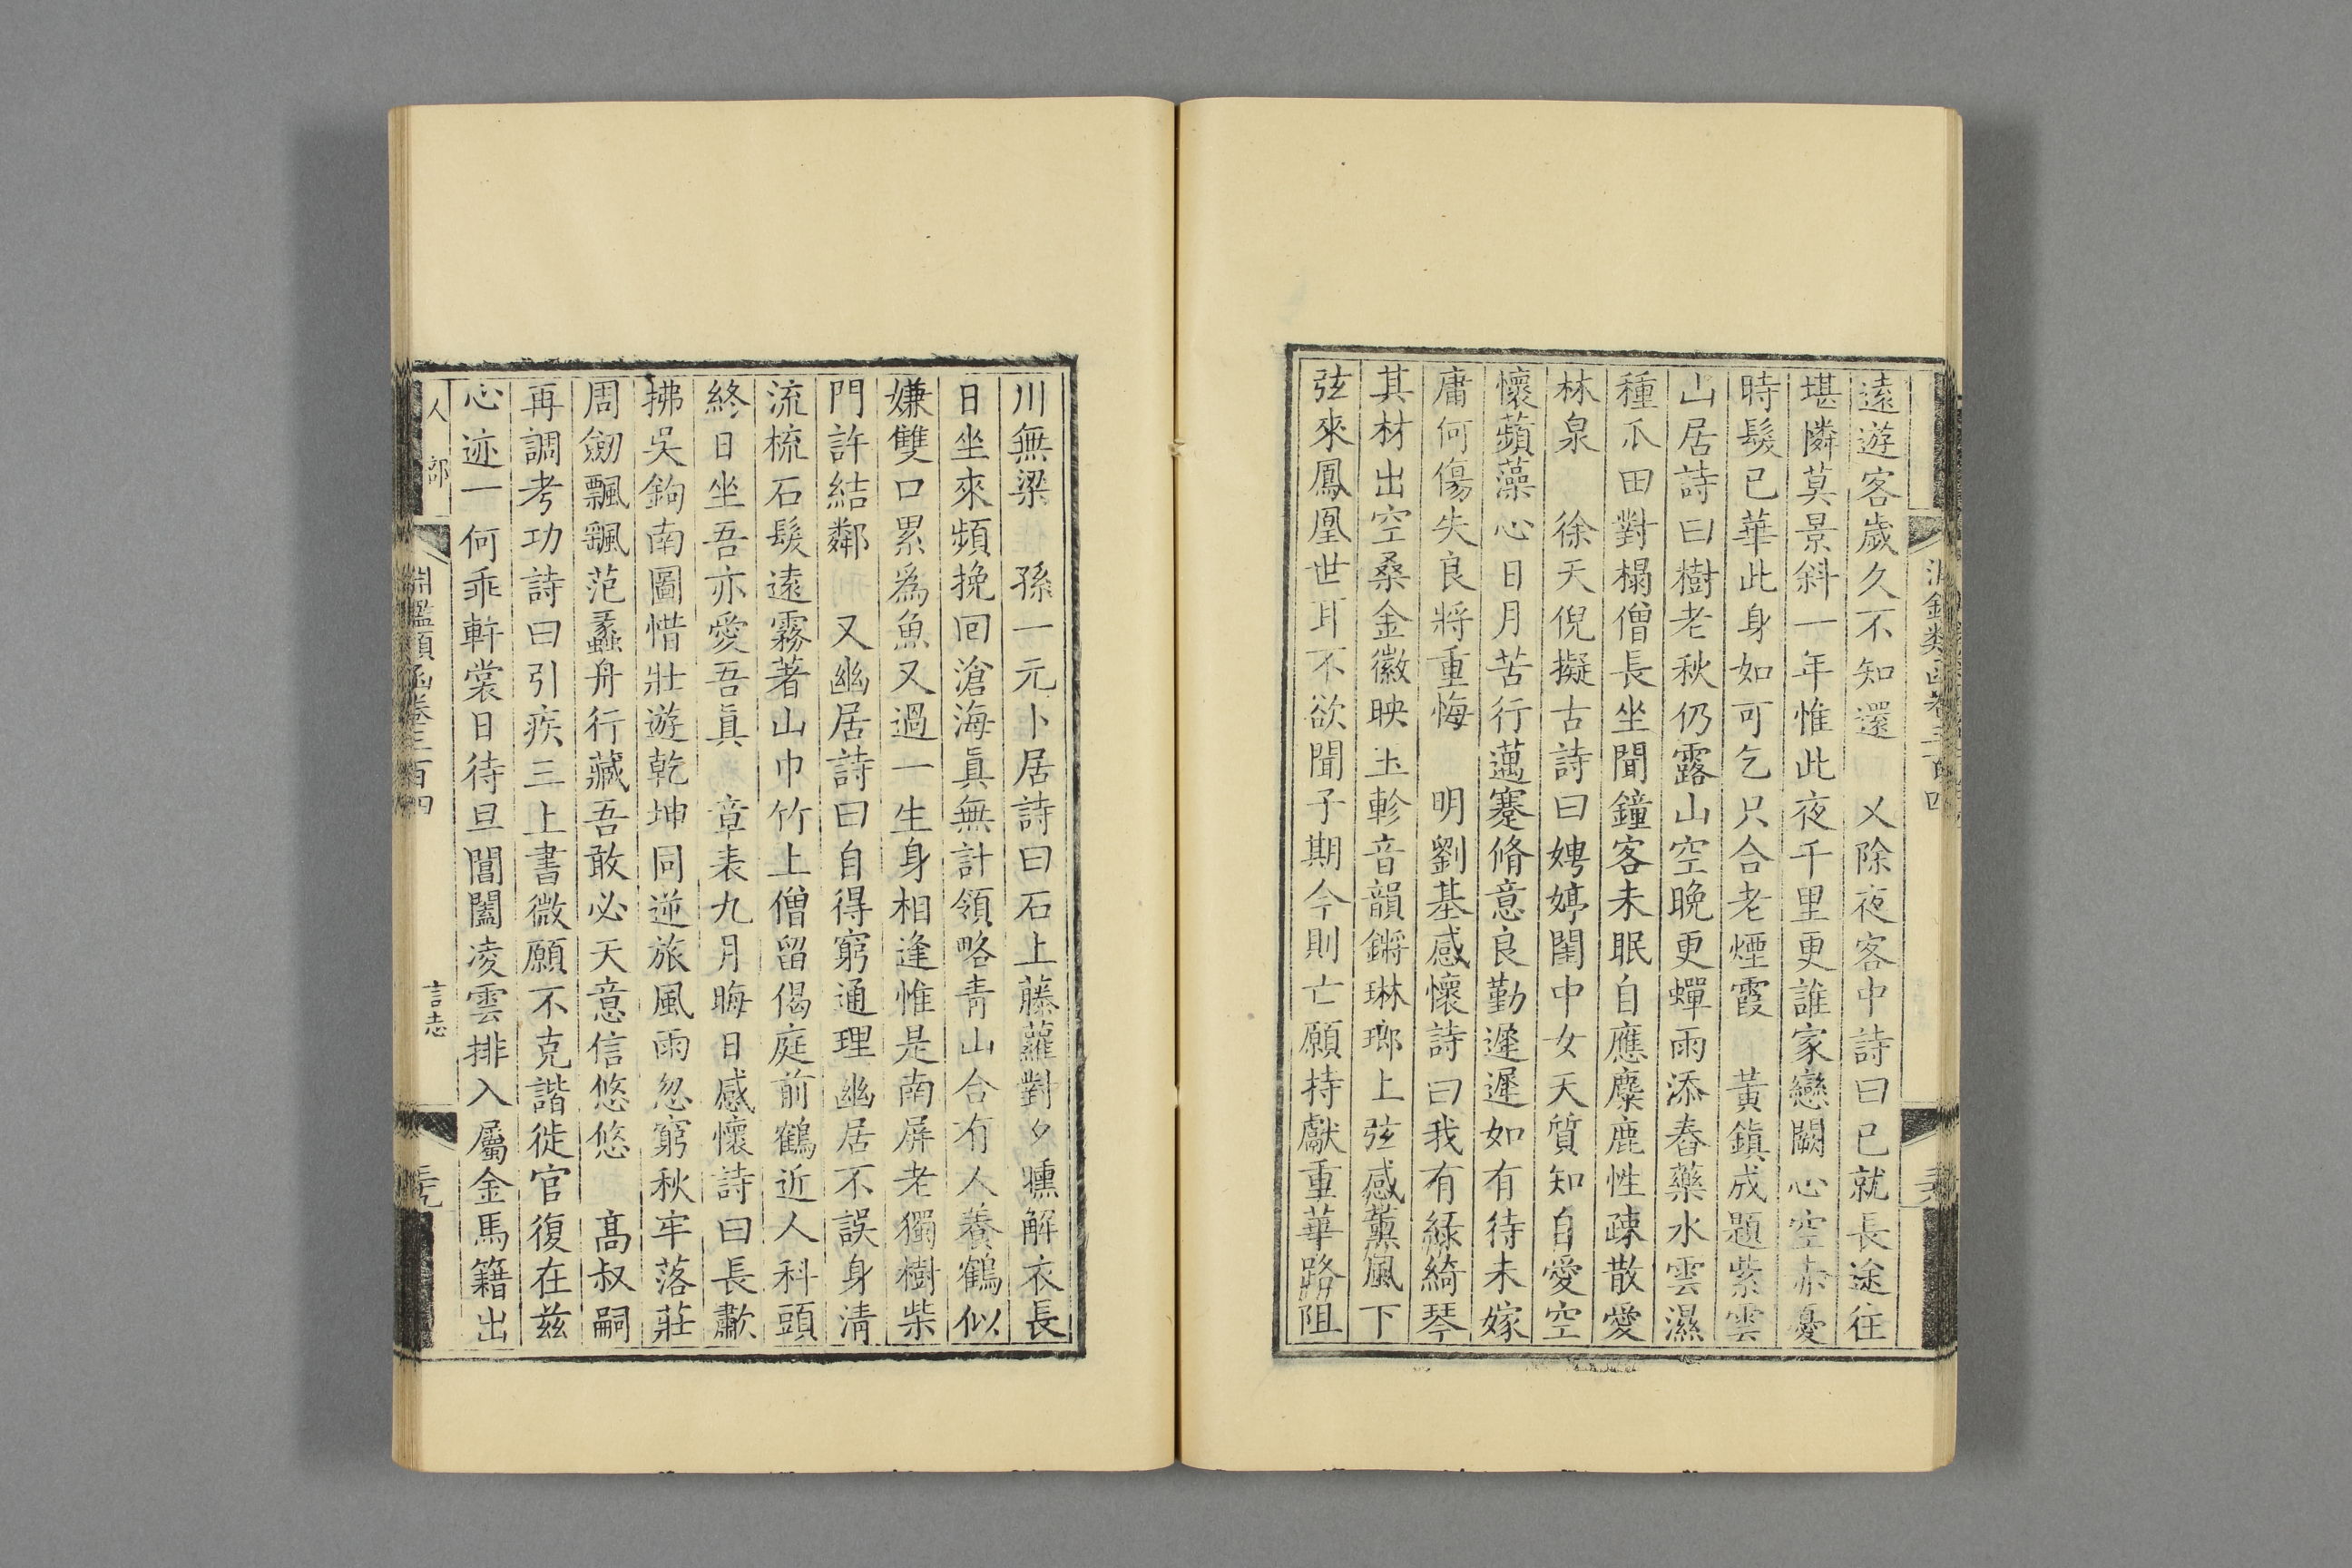 遠遊客歲久不知還　又除夜客中詩曰已就長途往
堪憐莫景斜一年惟此夜千里更誰家戀闕心空赤憂
時髮已華此身如可乞只合老煙霞　黃鎮成題紫雲
山居詩曰樹老秋仍露山空晚更蟬雨添舂藥水雲濕
種爪田對榻僧長坐聞鐘客未眠自應麋鹿性疎散愛
林泉　徐天倪擬古詩曰娉婷閨中女天質知自愛空
懷蘋藻心日月苦行邁蹇脩意良勤遲遲如有待未嫁
庸何傷失良將重悔　明劉基感懷詩曰我有綠綺琴
其材出空桑金徽映玉軫音韻鏘琳瑯上弦感薰風下
弦來鳳凰世耳不欲聞子期今則亡願持獻重華路阻
川無梁　孫一元卜居詩曰石上藤蘿對夕曛解衣長
日坐來頻挽回滄海真無計領略青山合有人養鶴似
嫌雙口累為魚又過一生身相逢惟是南屏老獨樹柴
門許結鄰　又幽居詩曰自得窮通理幽居不誤身清
流梳石髮遠霧著山巾竹上僧留偈庭前鶴近人科頭
終日坐吾亦愛吾真　章表九月晦日感懷詩曰長歗
拂吳鉤南圖惜壯遊乾坤同逆旅風雨忽窮秋牢落莊
周劒飄飄范蠡舟行藏吾敢必天意信悠悠　高叔嗣
再調考功詩曰引疾三上書微願不克諧徙官復在茲
心迹一何乖軒裳日待旦閶闔凌雲排入屬金馬籍出
人部
淵鑑類函卷三百四
言志